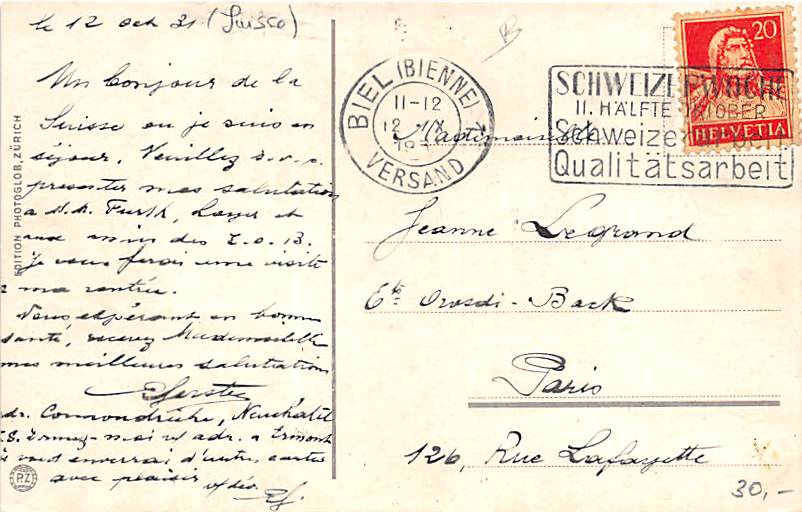 le 12 oct 31 (Suisse)
Un bonjour de la
Suisse ou je suis en
séjour. Veuillez s.v.p.
presenter mes salutations
a M.M. Furth, Loyer et
aux amis des E.O.B.
Je vous ferais une visite
a ma rentrée.
Vous espérant en bonne
santé, recevez Mademoiselle
mes meilleures salutations
EGerster
adr. Neuchatel
P.S. mai v/ adr. a Ermont
je vous enverrai d'autres cartes
avec plaisir v/ dév.
EG.
EDITION PHOTOGLOB, ZÜRICH
PZ
B
BIEL (BIENNE) 1
11-12
12. IX.
VERSAND
SCHWEIZERWOCHE
II. HÄLFTE OKTOBER
Schweizer
Qualitätsarbeit
20
HELVETIA
Mademoiselle
Jeanne Legrand
Ets Orosdi-Back
Paris
126, Rue Lafayette
30,-